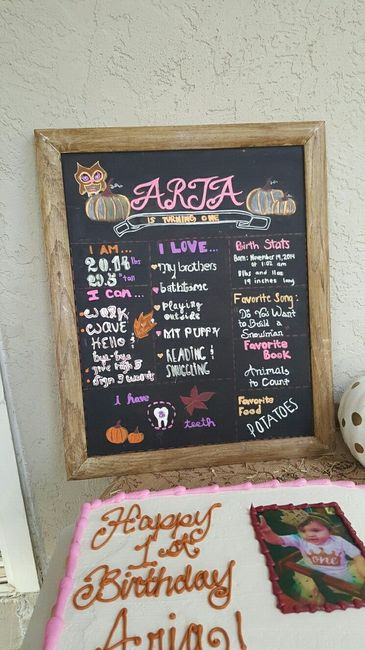 ARIA
IS TURNING ONE
I AM...
20.14 lbs
29.5" tall
I can...
WALK
WAVE
HELLO &
bye-bye
give high 5
sign I want
I LOVE...
my brothers
bathtime
Playing
outside
MY PUPPY
READING &
SNUGGLING
I have
8
teeth
Birth Stats
Born: November 19, 2014
at 1:02 am
8lbs and 11oz
19 inches long
Favorite Song:
Do You Want
to Build a
Snowman
Favorite
Book
Animals
to Count
Favorite
Food
POTATOES
Happy
1st
Birthday
Aria!
one